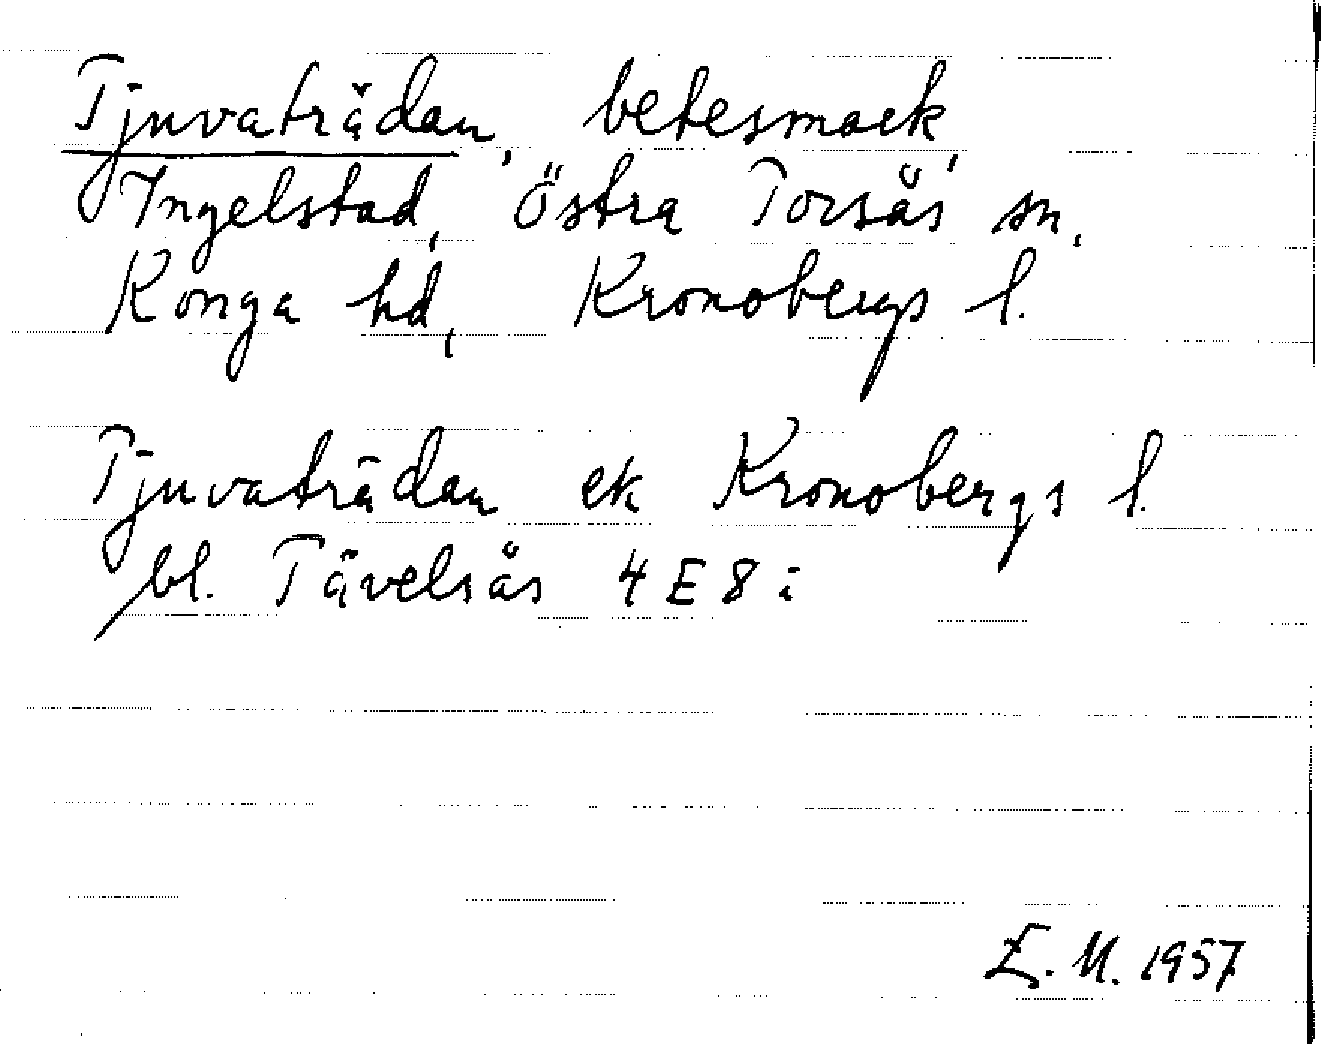 Tjuvaträdan, betesmark,
Ingelstad, Östra Torsås sn,
Konga hd, Kronobergs l.
Tjuvaträdan ek Kronobergs l.
bl. Tävelsås 4 E 8 i
E. M. 1957